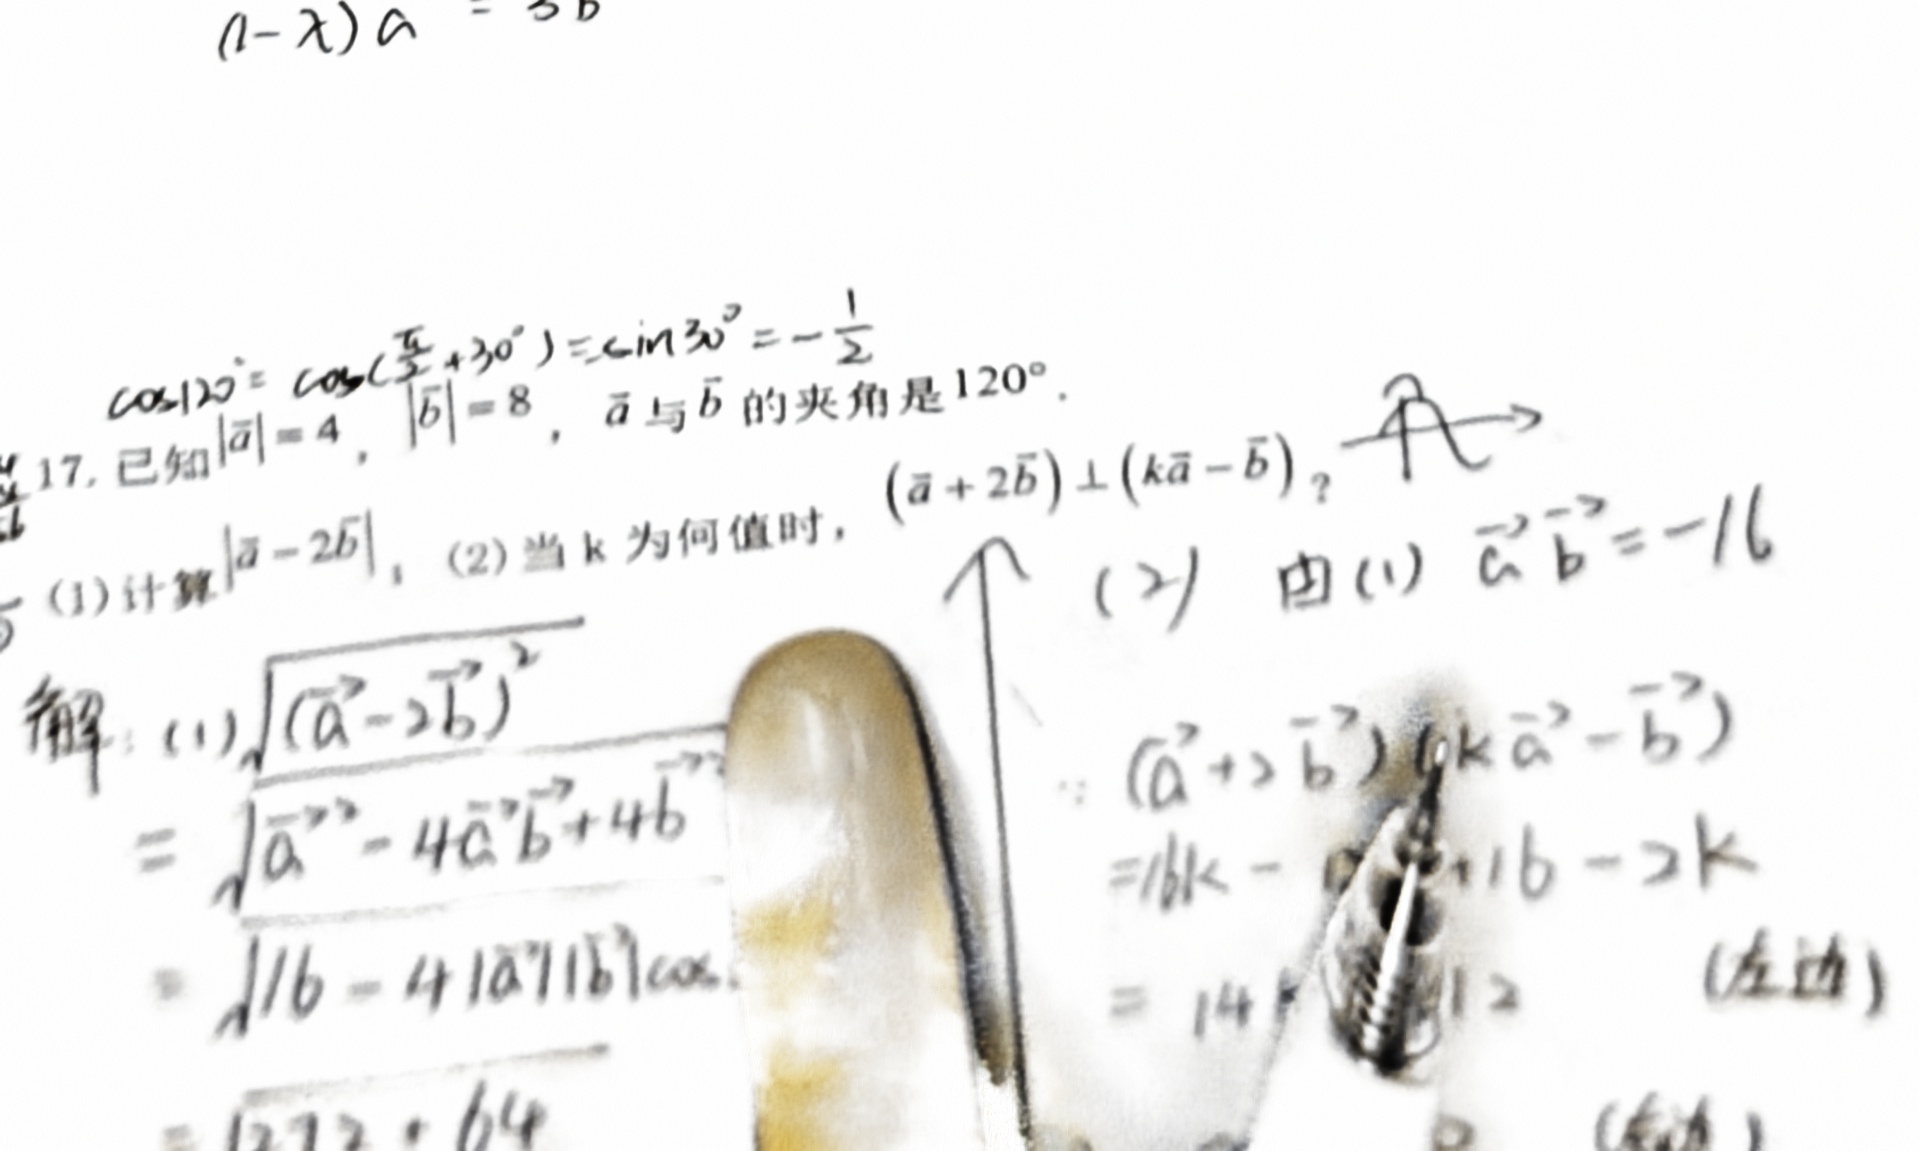 (1-λ)a = 3b
cos120°= cos(π/2+30°)=-sin30°=-1/2
17. 已知|a̅|=4, |b̅|=8, a̅与b̅的夹角是120°.
(1)计算|a̅-2b̅|, (2)当k为何值时, (a̅+2b̅)⊥(ka̅-b̅)?
解:(1)√(a⃗-2b⃗)²
=√a⃗²-4a⃗b⃗+4b⃗²
=√16-4|a⃗||b⃗|cos
=√272+64
(2) 由(1) a⃗b⃗=-16
∵(a⃗+2b⃗)(ka⃗-b⃗)
=16k- +16-2k
=14 12 (左边)
(右边)